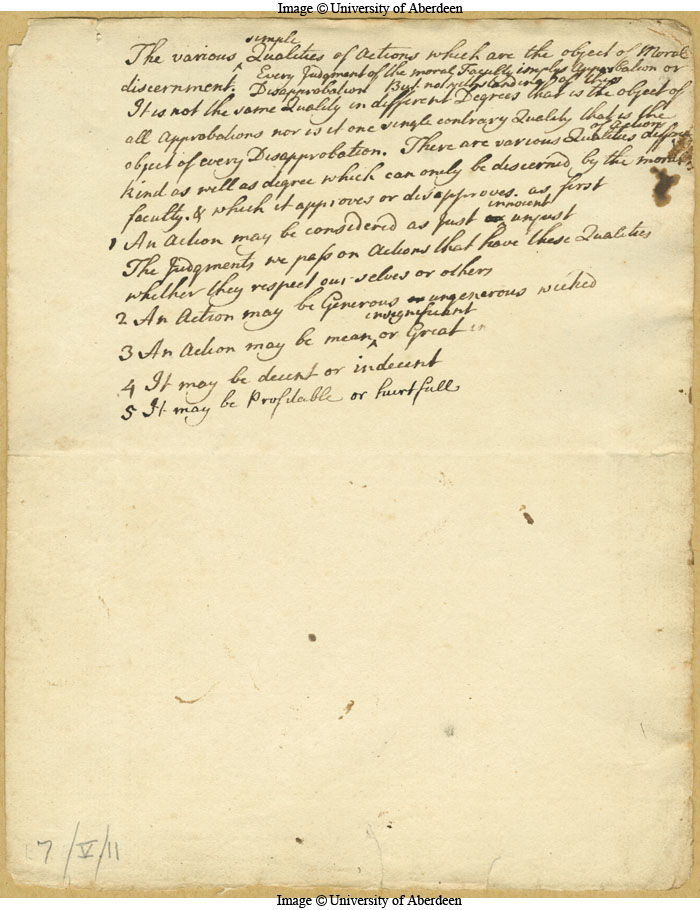 Image © University of Aberdeen
simple
The various Qualities of Actions which are the object of Moral
Every Judgment of the moral Faculty implys Approbation or
discernment. Disapprobation But notwithstanding of this
It is not the same Quality in different Degrees that is the object of
all Approbations nor is it one single contrary Quality that is the
of Actions
object of every Disapprobation. There are various Qualities
kind as well as degree which can only be discerned by the moral
faculty. & which it approves or disapproves. as first
innocent
1 An Action may be considered as Just or unjust
The Judgments we pass on Actions that have these Qualities
whether they respect our selves or others
2 An Action may be Generous or ungenerous wicked
insignificant
3 An Action may be mean or Great
4 It may be decent or indecent
5 It may be Profitable or hurtfull
7/V/11
Image © University of Aberdeen